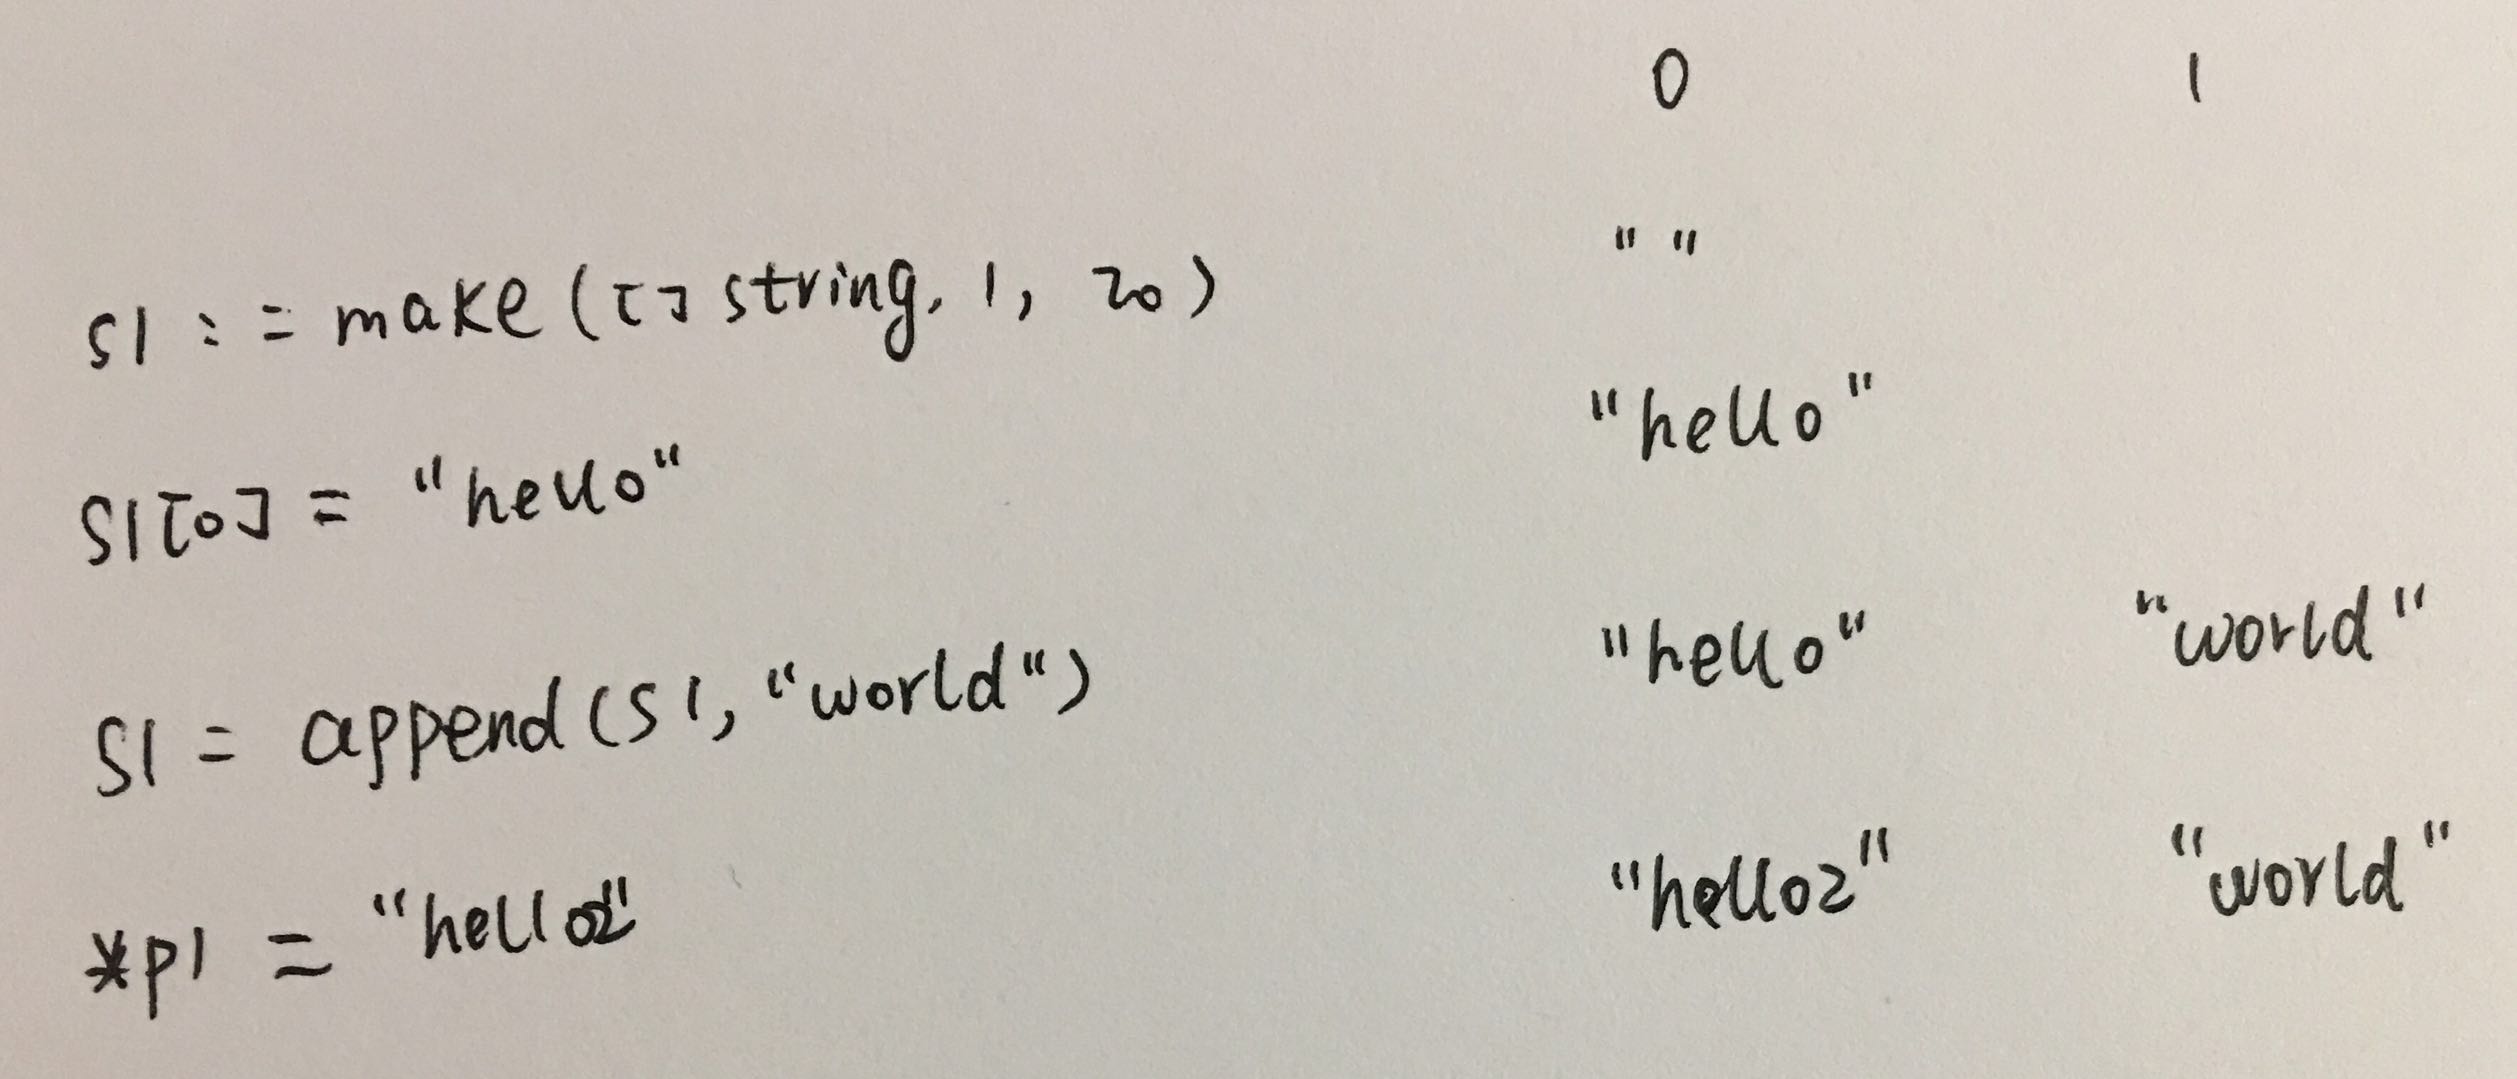 0 1
s1 := make([]string, 1, 20) ""
s1[0] = "hello" "hello"
s1 = append(s1, "world") "hello" "world"
*p1 = "hello2" "hello2" "world"